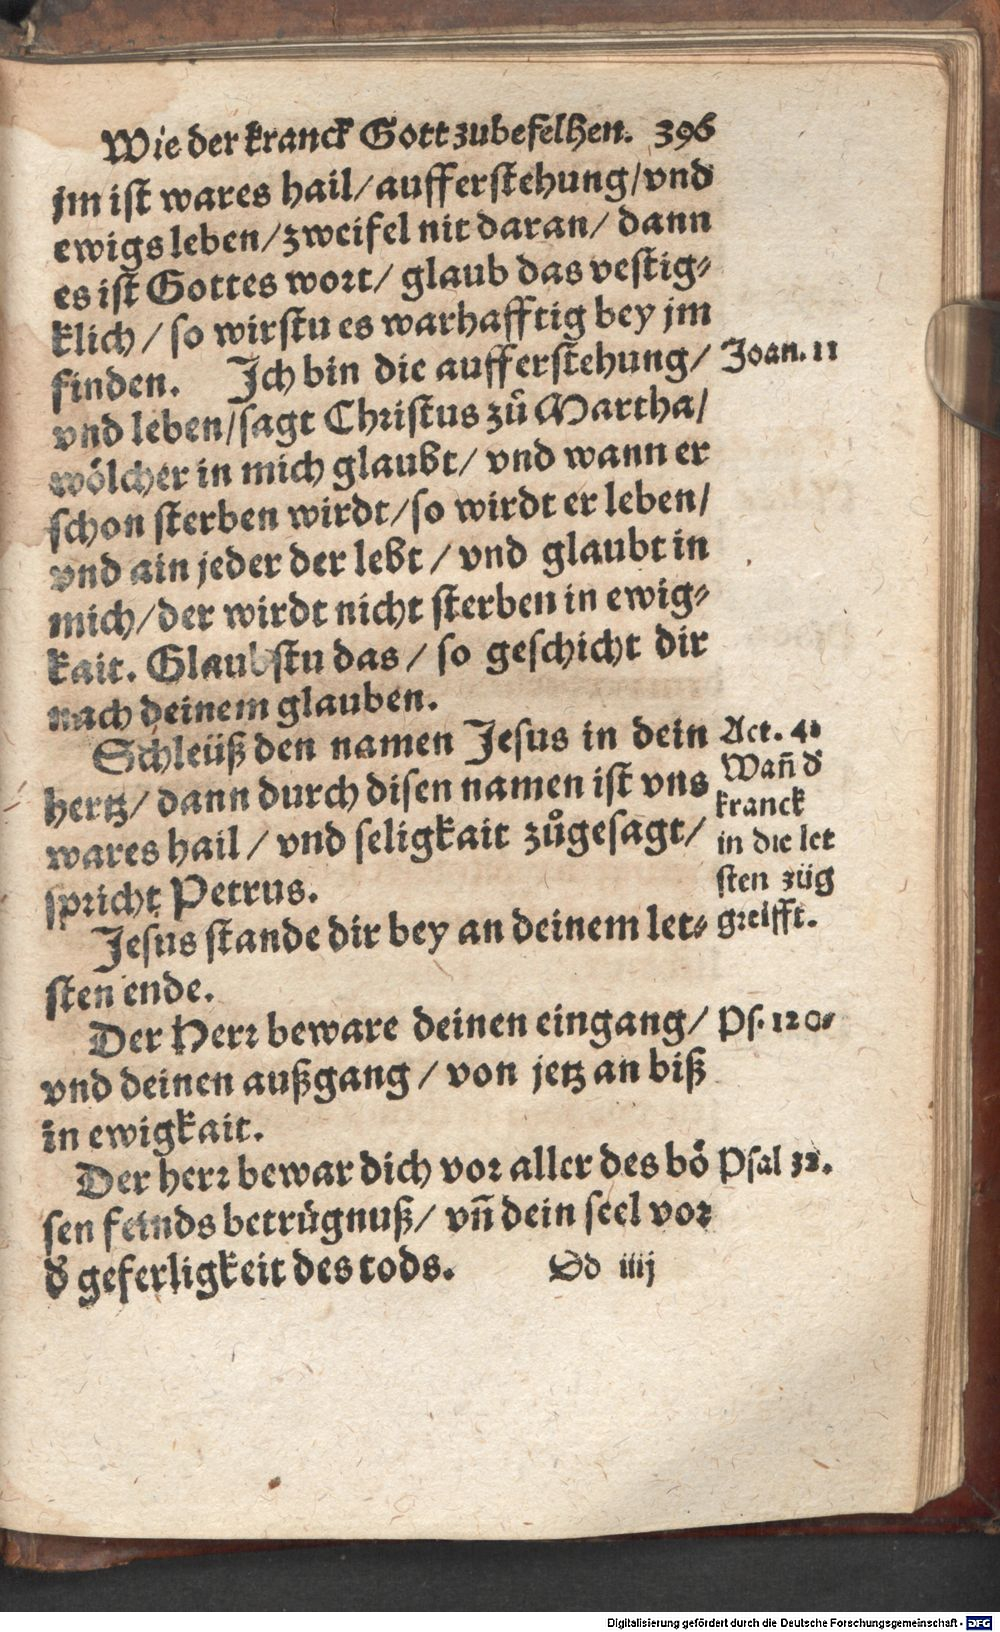 Wie der kranck Gott zubefelhen. 396
jm ist wares hail/ aufferstehung/ vnd
ewigs leben/ zweifel nit daran/ dann
es ist Gottes wort/ glaub das vestig⸗
klich/ so wirstu es warhafftig bey jm
finden. Ich bin die aufferstehung/
Joan. 11
vnd leben/ sagt Christus zů Martha/
wölcher in mich glaubt/ vnd wann er
schon sterben wirdt/ so wirdt er leben/
vnd ain jeder der lebt/ vnd glaubt in
mich/ der wirdt nicht sterben in ewig⸗
kait. Glaubstu das/ so geschicht dir
nach deinem glauben.
Schleüß den namen Jesus in dein
hertz/ dann durch disen namen ist vns
wares hail/ vnd seligkait zůgesagt/
spricht Petrus.
Act. 4.
Wañ d̕
kranck
in die let
sten züg
greifft.
Jesus stande dir bey an deinem let⸗
sten ende.
Der Herr beware deinen eingang/
Ps. 120.
vnd deinen außgang/ von jetz an biß
in ewigkait.
Der herr bewar dich vor aller des bö
Psal
sen feinds betrügnuß/ vñ dein seel vor
d̕ geferligkeit des tods.
Dd iiij
Digitalisierung gefördert durch die Deutsche Forschungsgemeinschaft - DFG